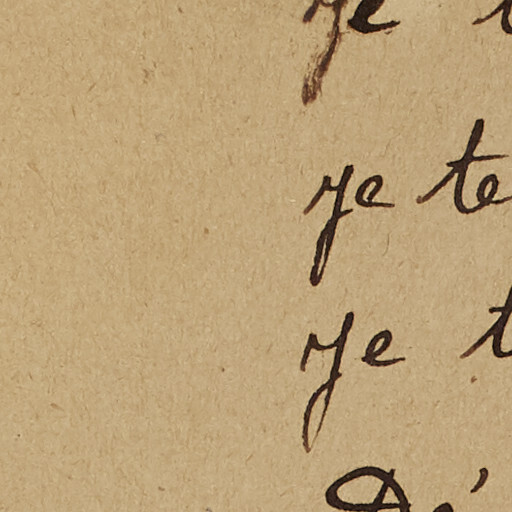 je t
je te
je t
Dé